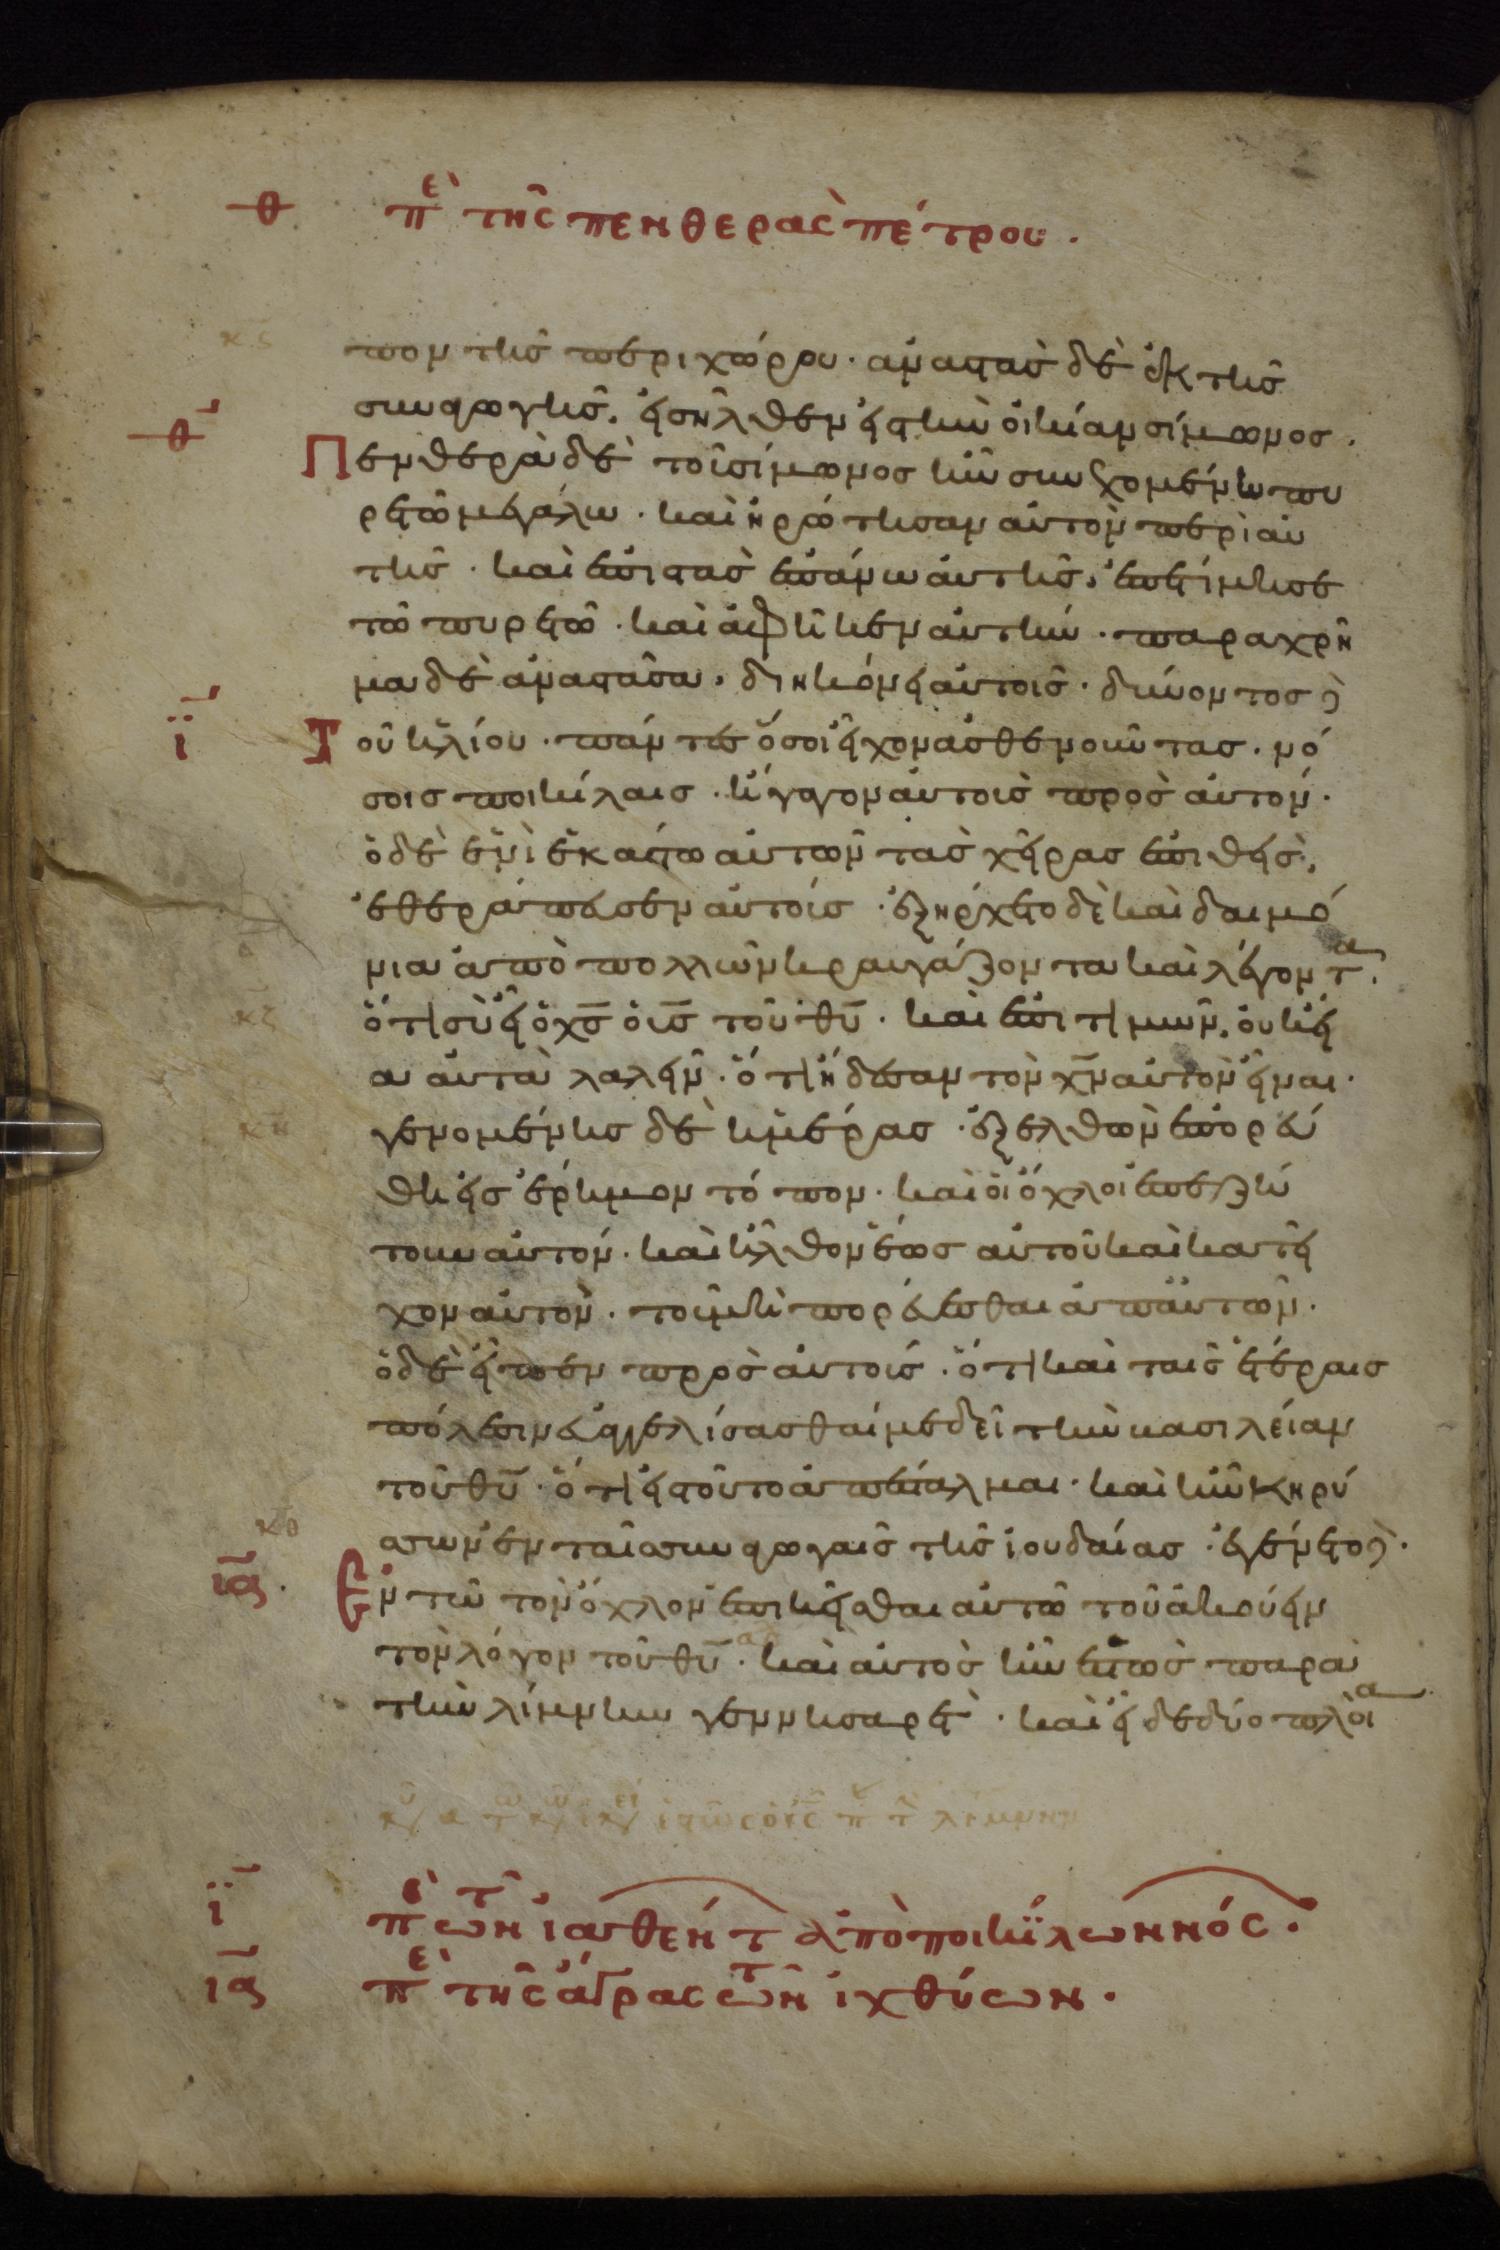 θ πε τῆς πενθερᾶς πέτρου.
κϛ
πον τῆς περιχώρου · ἀναστὰς δὲ ἐκ τῆς
συναγωγῆς, εἰσῆλθεν εἰς τὴν οἰκίαν σίμωνος ·
θ Πενθερὰ δὲ τοῦ σίμωνος ἦν συνεχομένη πυ
ρετῶ μεγάλω · καὶ ἠρώτησαν αὐτὸν περὶ αὐ
τῆς · καὶ ἐπιστὰς ἐπάνω αὐτῆς, ἐπετίμησε
τῶ πυρετῶ · καὶ ἀφῆκεν αὐτήν · παραχρῆ
μα δὲ ἀναστᾶσα, διηκόνει αὐτοῖς · δύνοντος δὲ
ϊ Τοῦ ἡλίου · πάντες ὅσοι εἶχον ἀσθενοῦντας · νό
σοις ποικίλαις · ἤγαγον αὐτοὺς πρὸς αὐτόν ·
ὁ δὲ ἑνὶ ἑκάστω αὐτῶν τὰς χεῖρας ἐπιθεὶς,
ἐθεράπευσεν αὐτούς · ἐξήρχετο δὲ καὶ δαιμό
νια ἀπὸ πολλῶν κραυγάζοντα καὶ λέγοντα ·
κζ ὅτι σὺ εἶ ὁ χς ὁ υς τοῦ θυ · καὶ ἐπιτιμῶν, οὐκ εἴ
α αὐτὰ λαλεῖν · ὅτι ἤδεισαν τὸν χν αὐτὸν εἶναι ·
κη γενομένης δὲ ἡμέρας · ἐξελθὼν ἐπορεύ
θη εἰς ἔρημον τόπον · καὶ οἱ ὄχλοι ἐπεζή
τουν αὐτόν · καὶ ἦλθον ἕως αὐτοῦ καὶ κατεῖ
χον αὐτὸν · τοῦ μὴ πορεύεσθαι ἀπ' αὐτῶν ·
ὁ δὲ εἶπεν πρὸς αὐτούς · ὅτι καὶ ταῖς ἑτέραις
πόλεσιν εὐαγγελίσασθαί με δεῖ τὴν βασιλείαν
τοῦ θυ · ὅτι εἰς τοῦτο ἀπέσταλμαι · καὶ ἦν κηρύ
κθ σσων ἐν ταῖς συναγωγαῖς τῆς ἰουδαίας · ἐγένετο δὲ ·
ια · Ἐν τῶ τὸν ὄχλον ἐπικεῖσθαι αὐτῶ τοῦ ἀκούειν
τὸν λόγον τοῦ θυ · καὶ αὐτὸς ἦν ἑστὼς παρὰ
τὴν λίμνην γεννησαρὲτ · καὶ εἶδε δύο πλοῖα
ϊ πε τῶν ἰαθέντ ἀπὸ ποικίλων νόσ ·
ια πε τῆς ἄγρας τῶν ἰχθύων ·